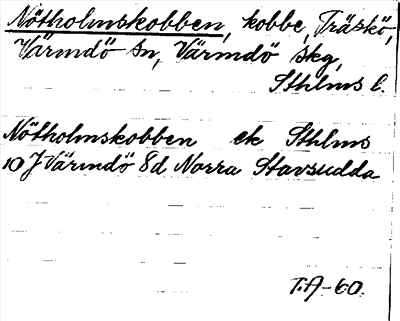 Nötholmskobben, kobbe, Träskö,
Värmdö sn, Värmdö skg,
Sthlms l.
Nötholmskobben ek Sthlms
10 J Värmdö 8d Norra Stavsudda
T.A-60.